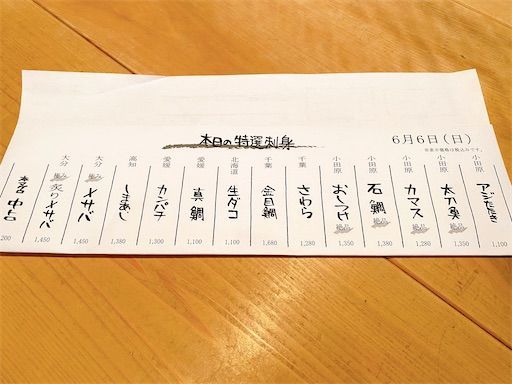 本日の特選刺身
6月6日(日)
※表示価格は税込みです。
小田原
アジたたき
1,100
小田原
太刀魚
絶品
1,350
小田原
カマス
絶品
1,280
小田原
石鯛
絶品
1,380
小田原
おしつけ
絶品
1,350
千葉
さわら
1,280
千葉
金目鯛
1,680
北海道
生ダコ
1,100
愛媛
真鯛
1,300
愛媛
カンパチ
1,300
高知
しまあじ
1,380
大分
〆サバ
1,450
大分
炙り〆サバ
1,450
,200